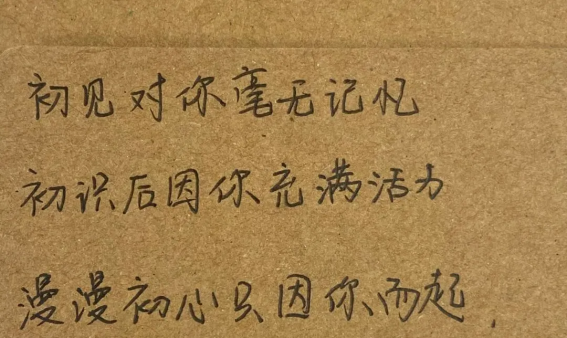 初见对你毫无记忆
初识后因你充满活力
漫漫初心只因你而起.